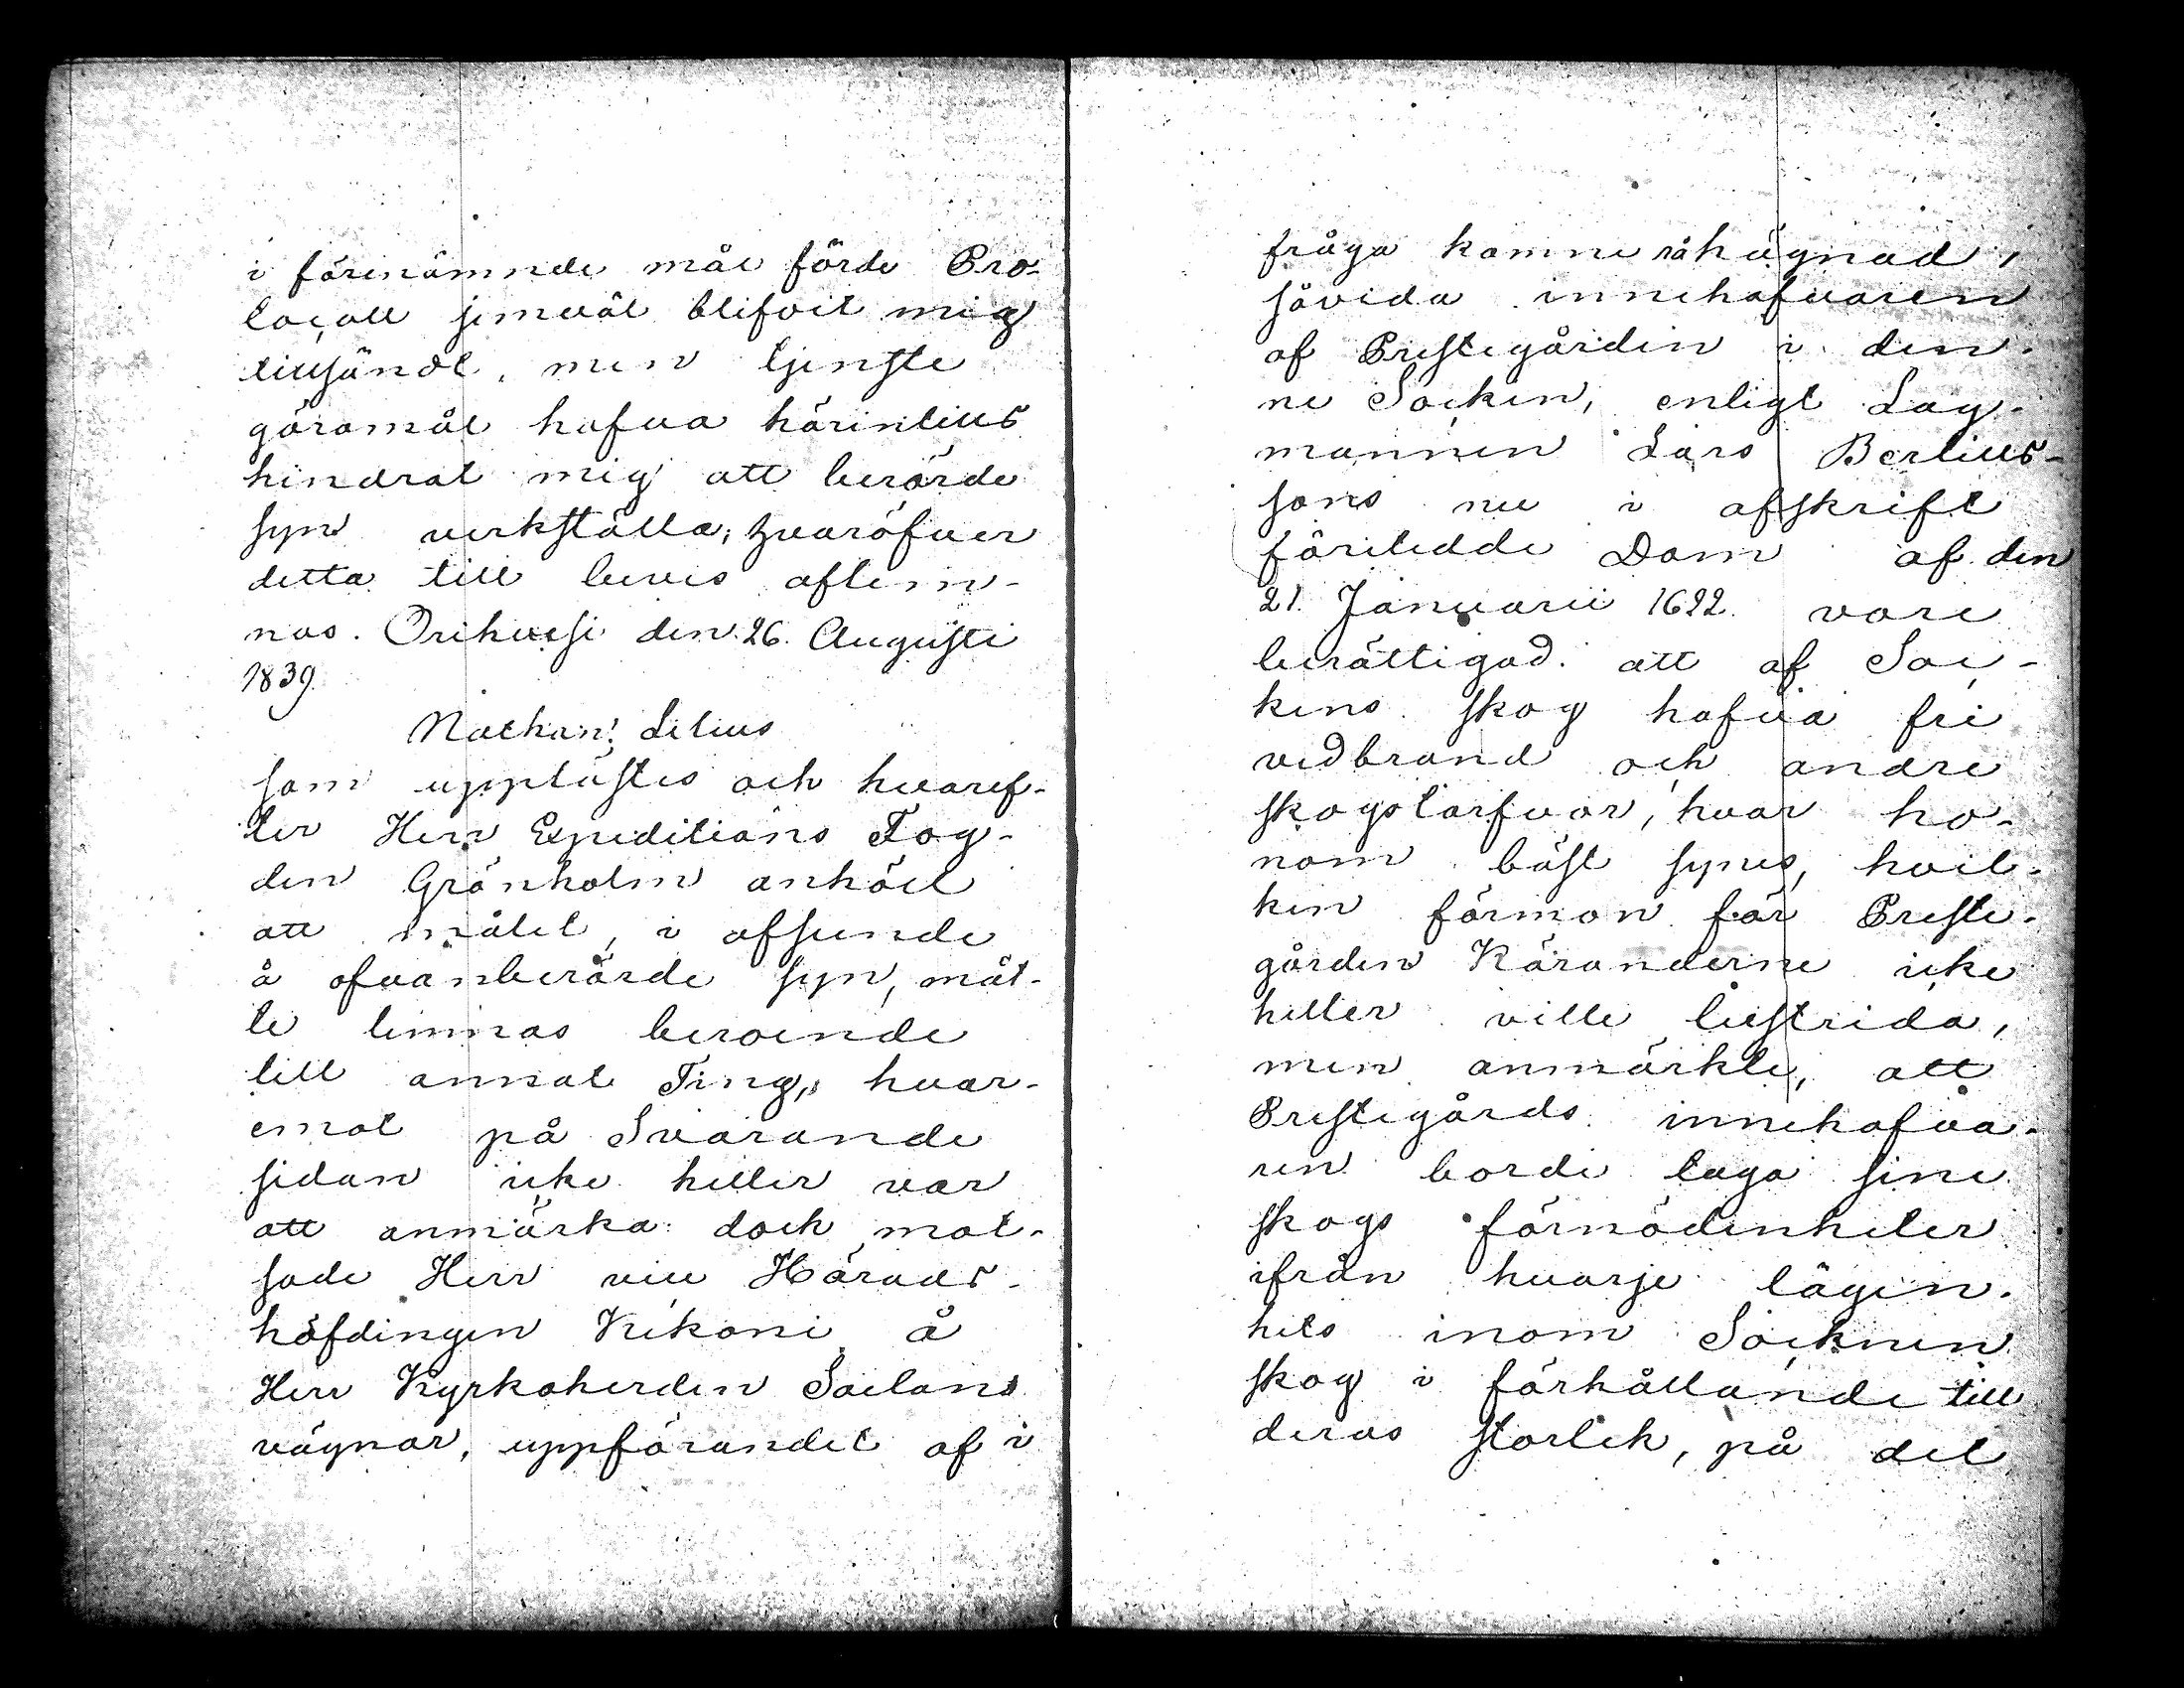 i förenämnde mål förde Pro-
tocoll jemväl blifvit mig
tillsändt, men tjenste
göromål hafva härintills
hindrat mig att berörde
syn verkställa; hvaröfver
detta till bevis aflem-
nas. Orihvesi den 26. Augusti
1839.
Nathan. Lilius
som upplästes och hvaref-
ter Herr Expeditions Fog-
den Grönholm anhöll
att målet, i afseende
å ofvanberörde syn, måt-
te lemnas beroende
till annat Ting, hvar-
emot på Svarande
sidan icke heller var
att anmärka: dock mot-
sade Herr vice Härads-
höfdingen Kikoni å
Herr Kyrkoherden Sacilans
vägnar, uppförandet af i
fråga komne råhägnad,
såvida innehafvaren
af Prestegården i den-
ne Socken, enligt Lag-
mannen Lars Bertills-
sons nu i afskrift
företedde Dom af den
21. Januarii 1622. vore
berättigad att af Soc-
kens skog hafva fri
vedbrand och andre
skogstarfvor, hvar ho-
nom bäst synes, hvil-
ken förmon för Preste-
gården Käranderne icke
heller ville bestrida,
men anmärkte, att
Prestegårds innehafva-
ren borde taga sine
skogs förnödenheter
ifrån hvarje lägen-
hets inom Socknen
skog i förhållande till
deras storlek, på det